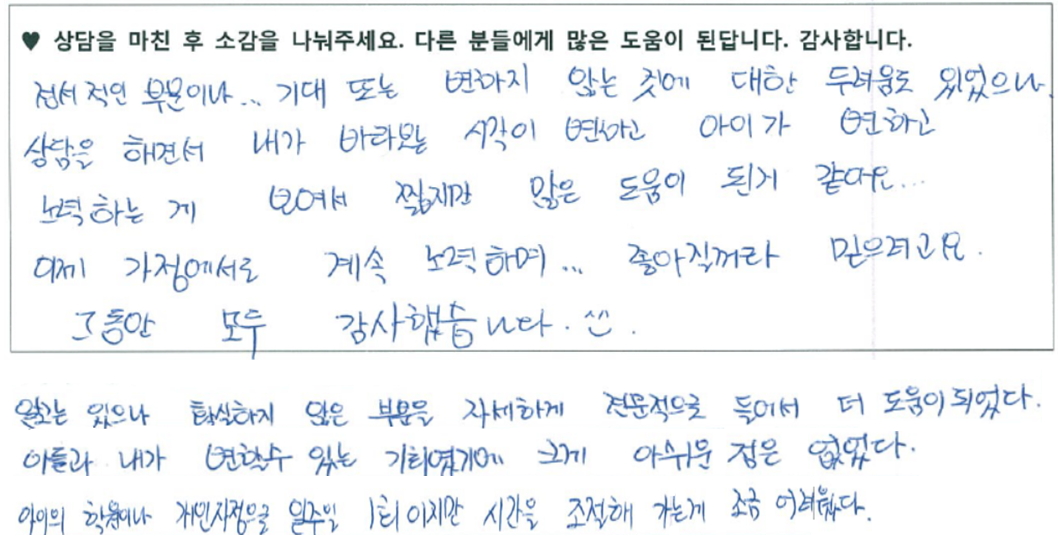 ♥ 상담을 마친 후 소감을 나눠주세요. 다른 분들에게 많은 도움이 된답니다. 감사합니다.
정서적인 부문이나... 기대 또는 변하지 않는 것에 대한 두려움도 있었으나,
상담을 해면서 내가 바라보는 시각이 변하고 아이가 변하고
노력하는 게 보여서 짧지만 많은 도움이 된거 같아요...
이제 가정에서도 계속 노력하며... 좋아질꺼라 믿으려고요.
그동안 모두 감사했습니다. ^^.
알고는 있으나 확실하지 않은 부문을 자세하게 전문적으로 들어서 더 도움이 되었다.
아들과 내가 변할수 있는 기회였기에 크게 아쉬운 점은 없었다.
아이의 학원이나 개인사정으로 일주일 1회이지만 시간을 조절해 가는게 조금 어려웠다.